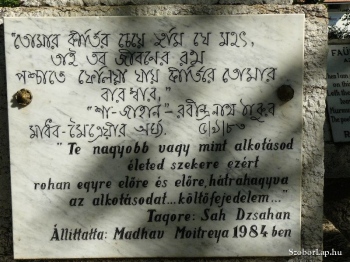 "তোমার কীর্তির চেয়ে তুমি যে মহৎ,
তাই তব জীবনের রথ
পশ্চাতে ফেলিয়া যায় কীর্তিরে তোমার
বারম্বার,"
"শা-জাহান" - রবীন্দ্র নাথ ঠাকুর
মাধব-মৈত্রেয়ীর অর্ঘ্য,
"Te nagyobb vagy mint alkotásod
életed szekere ezért
rohan egyre előre és előre, hátrahagyva
az alkotásodat...költőfejedelem..."
Tagore: Sah Dzsahan
Állíttatta: Madhav Moitreya 1984 ben
SzoborLap.hu